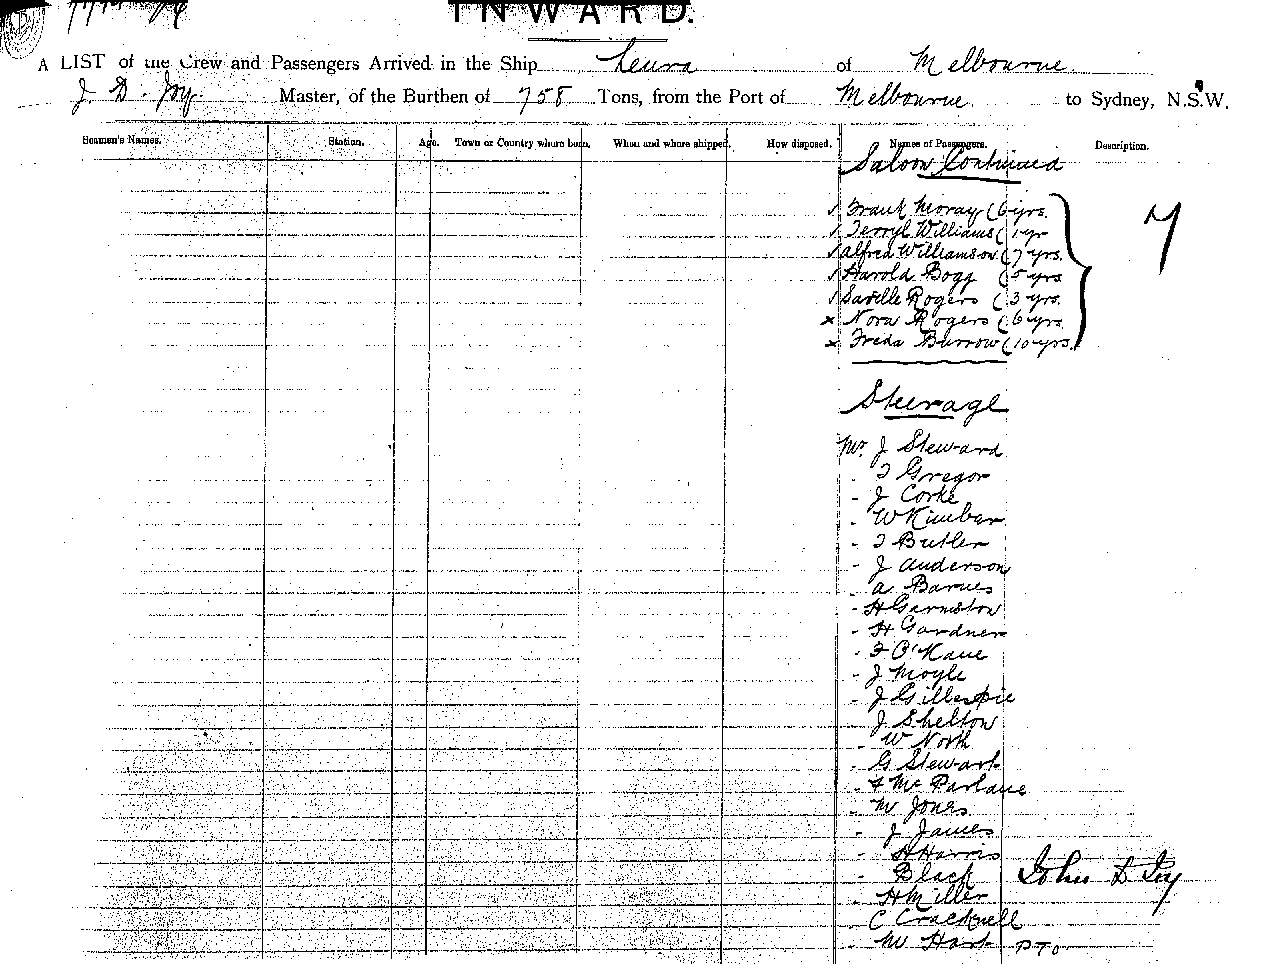 INWARD.
A LIST of the Crew and Passengers Arrived in the Ship Leura of Melbourne
J. D. Joy Master, of the Burthen of 758 Tons, from the Port of Melbourne to Sydney, N.S.W.
Seamen's Names. Station. Age. Town or Country where born. When and where shipped. How disposed. Names of Passengers. Description.
Saloon Continued
✓ Frank Moray (6 yrs.
✓ Terryl Williams (1 yr
✓ Alfred Williamson (7 yrs.
✓ Harold Bogg (5 yrs
✓ Saville Rogers (3 yrs.
x Nora Rogers (6 yrs.
x Freda Burrow (10 yrs.
7
Steerage
Mr. J Steward
- T Gregor
- J Corke
- W Kimbar
- T Butler
- J Anderson
- A Barnes
- H Garniston
- H Gardner
- F O'Kane
- J Moyle
- J Gillespie
- J Shelton
- W North
- G Stewart
- F McParlane
- W Jones
- J James
- H Harris
- Black
John D Joy
- H Miller
C Cracknell
- W Hart PTO